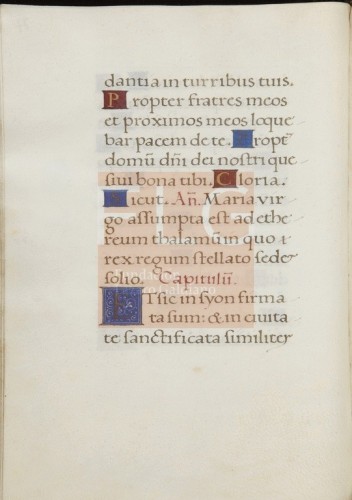 dantia in turribus tuis.
Propter fratres meos
et proximos meos loque
bar pacem de te. Propt̃
domũ dñi dei nostri que
siui bona tibi. Gloria.
Sicut. Añ. Maria vir
go assumpta est ad ethe
reum thalamũ in quo i
rex regum stellato sedet
solio. Capitulũ.
ET sic in syon firma
ta sum: & in ciuita
te sanctificata similiter
FLG